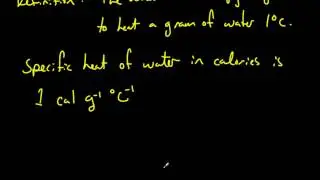 to heat a gram of water 1°C.
Specific heat of water in calories is
1 cal g⁻¹ °C⁻¹